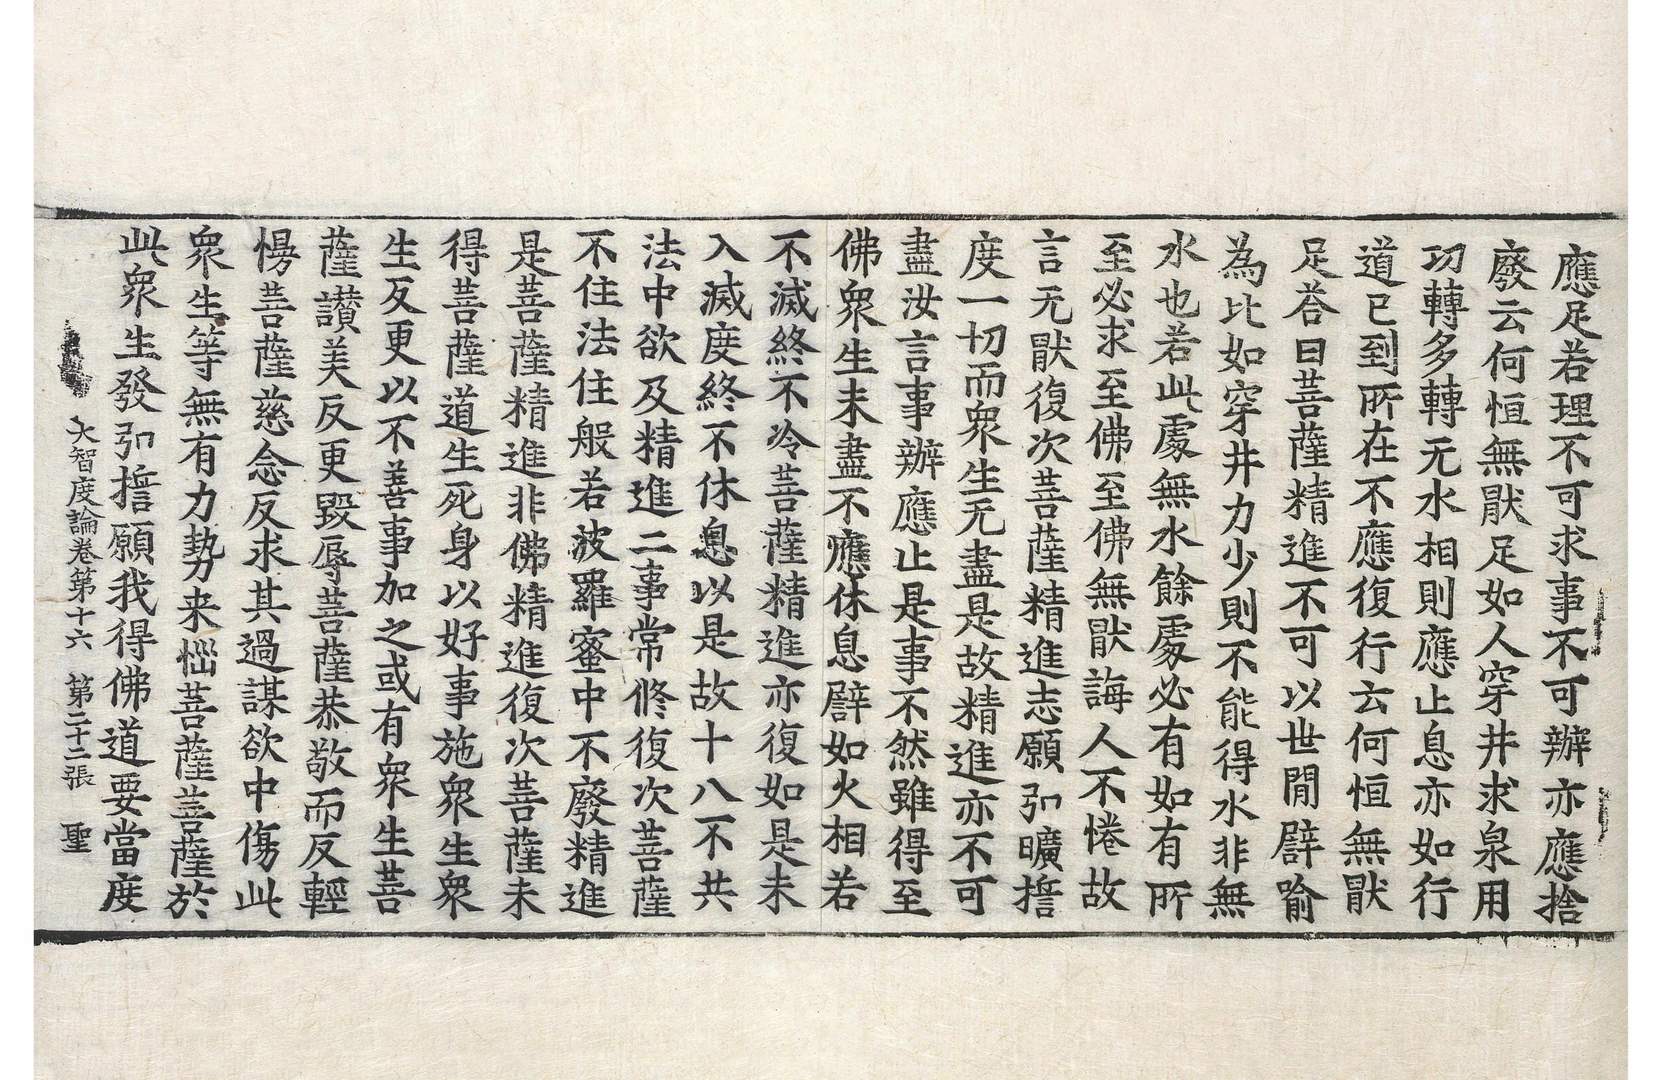 應足若理不可求事不可辦亦應捨
廢云何恒無猒足如人穿井求泉用
功轉多轉无水相則應止息亦如行
道已到所在不應復行云何恒無猒
足荅曰菩薩精進不可以世閒譬喻
為比如穿井力少則不能得水非無
水也若此處無水餘處必有如有所
至必求至佛至佛無猒誨人不惓故
言无猒復次菩薩精進志願弘曠誓
度一切而衆生无盡是故精進亦不可
盡汝言事辦應止是事不然雖得至
佛衆生未盡不應休息譬如火相若
不滅終不冷菩薩精進亦復如是未
入滅度終不休息以是故十八不共
法中欲及精進二事常修復次菩薩
不住法住般若波羅蜜中不廢精進
是菩薩精進非佛精進復次菩薩未
得菩薩道生死身以好事施衆生衆
生反更以不善事加之或有衆生菩
薩讃美反更毀辱菩薩恭敬而反輕
慢菩薩慈念反求其過謀欲中傷此
衆生等無有力勢来惱菩薩菩薩於
此衆生發弘誓願我得佛道要當度
大智度論卷第十六 第二十二張 聖